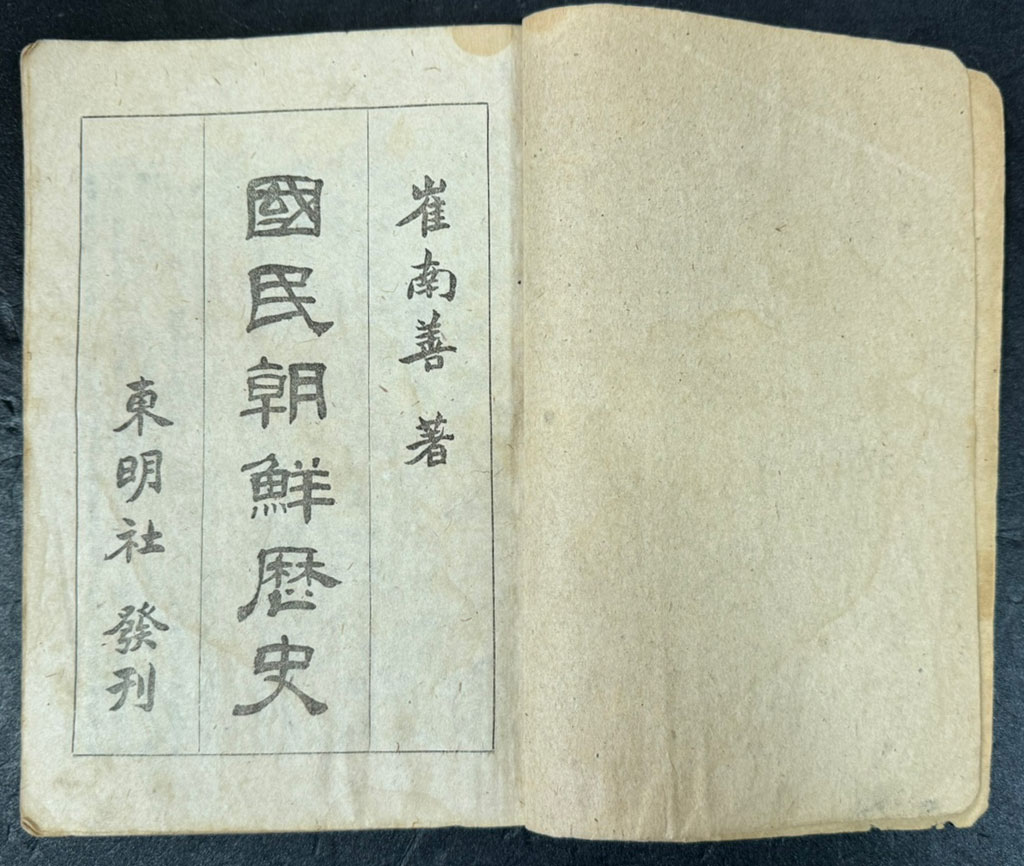 崔南善 著
國民朝鮮歷史
東明社 發刊